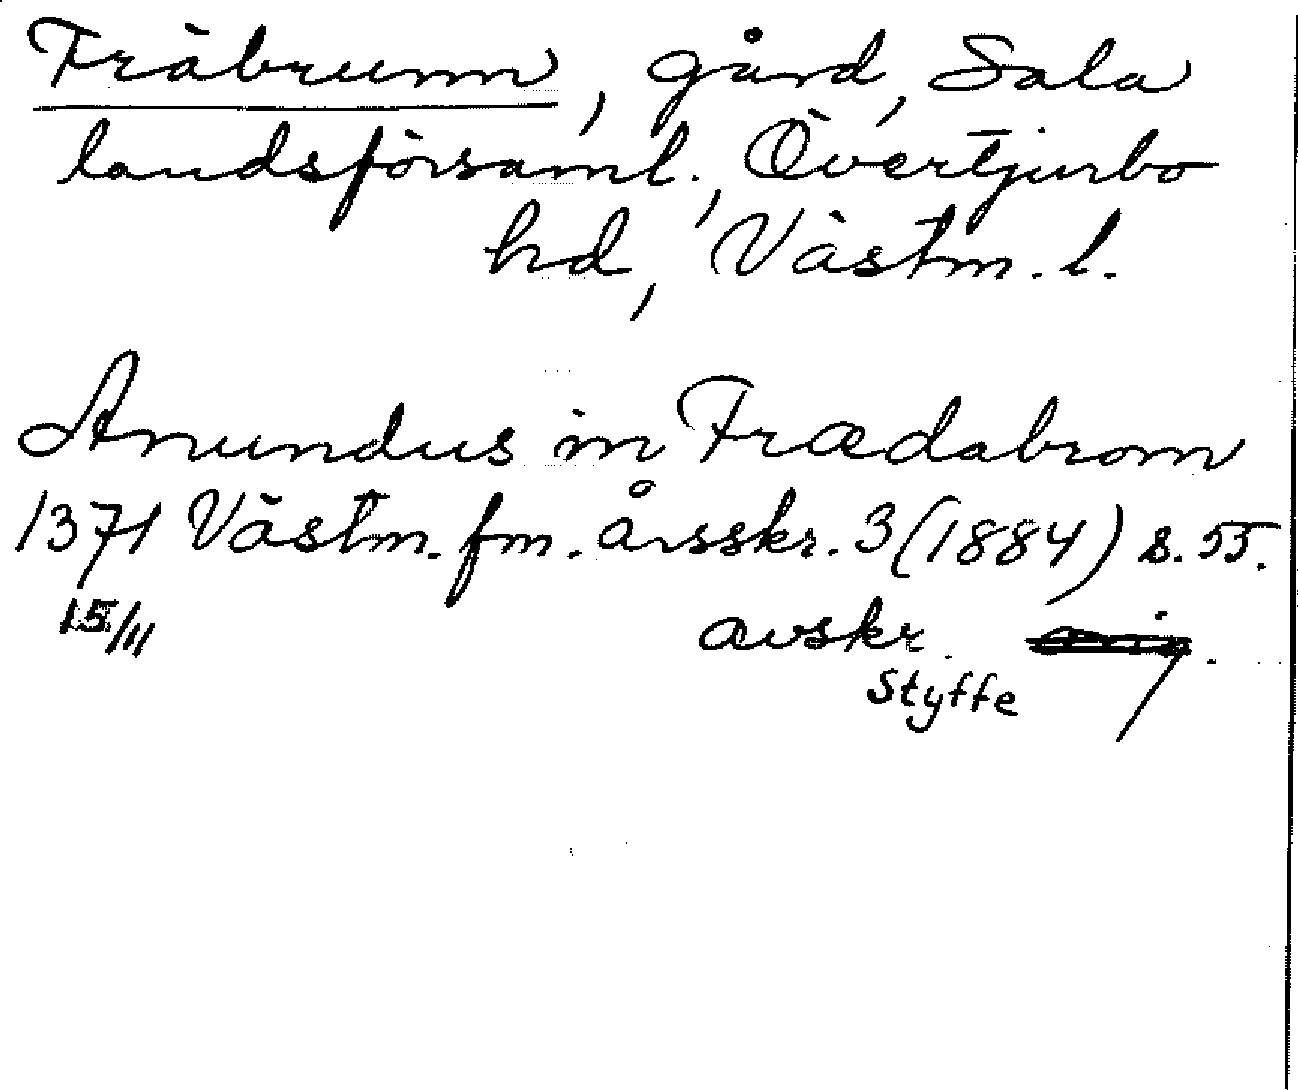 Träbrunn, gård, Sala
landsförsaml., Övertjurbo
hd, Västm. l.
Anundus in Trædabrom
1371 Västm. fm. årsskr. 3 (1884) s. 55.
15/11 avskr.
Styffe